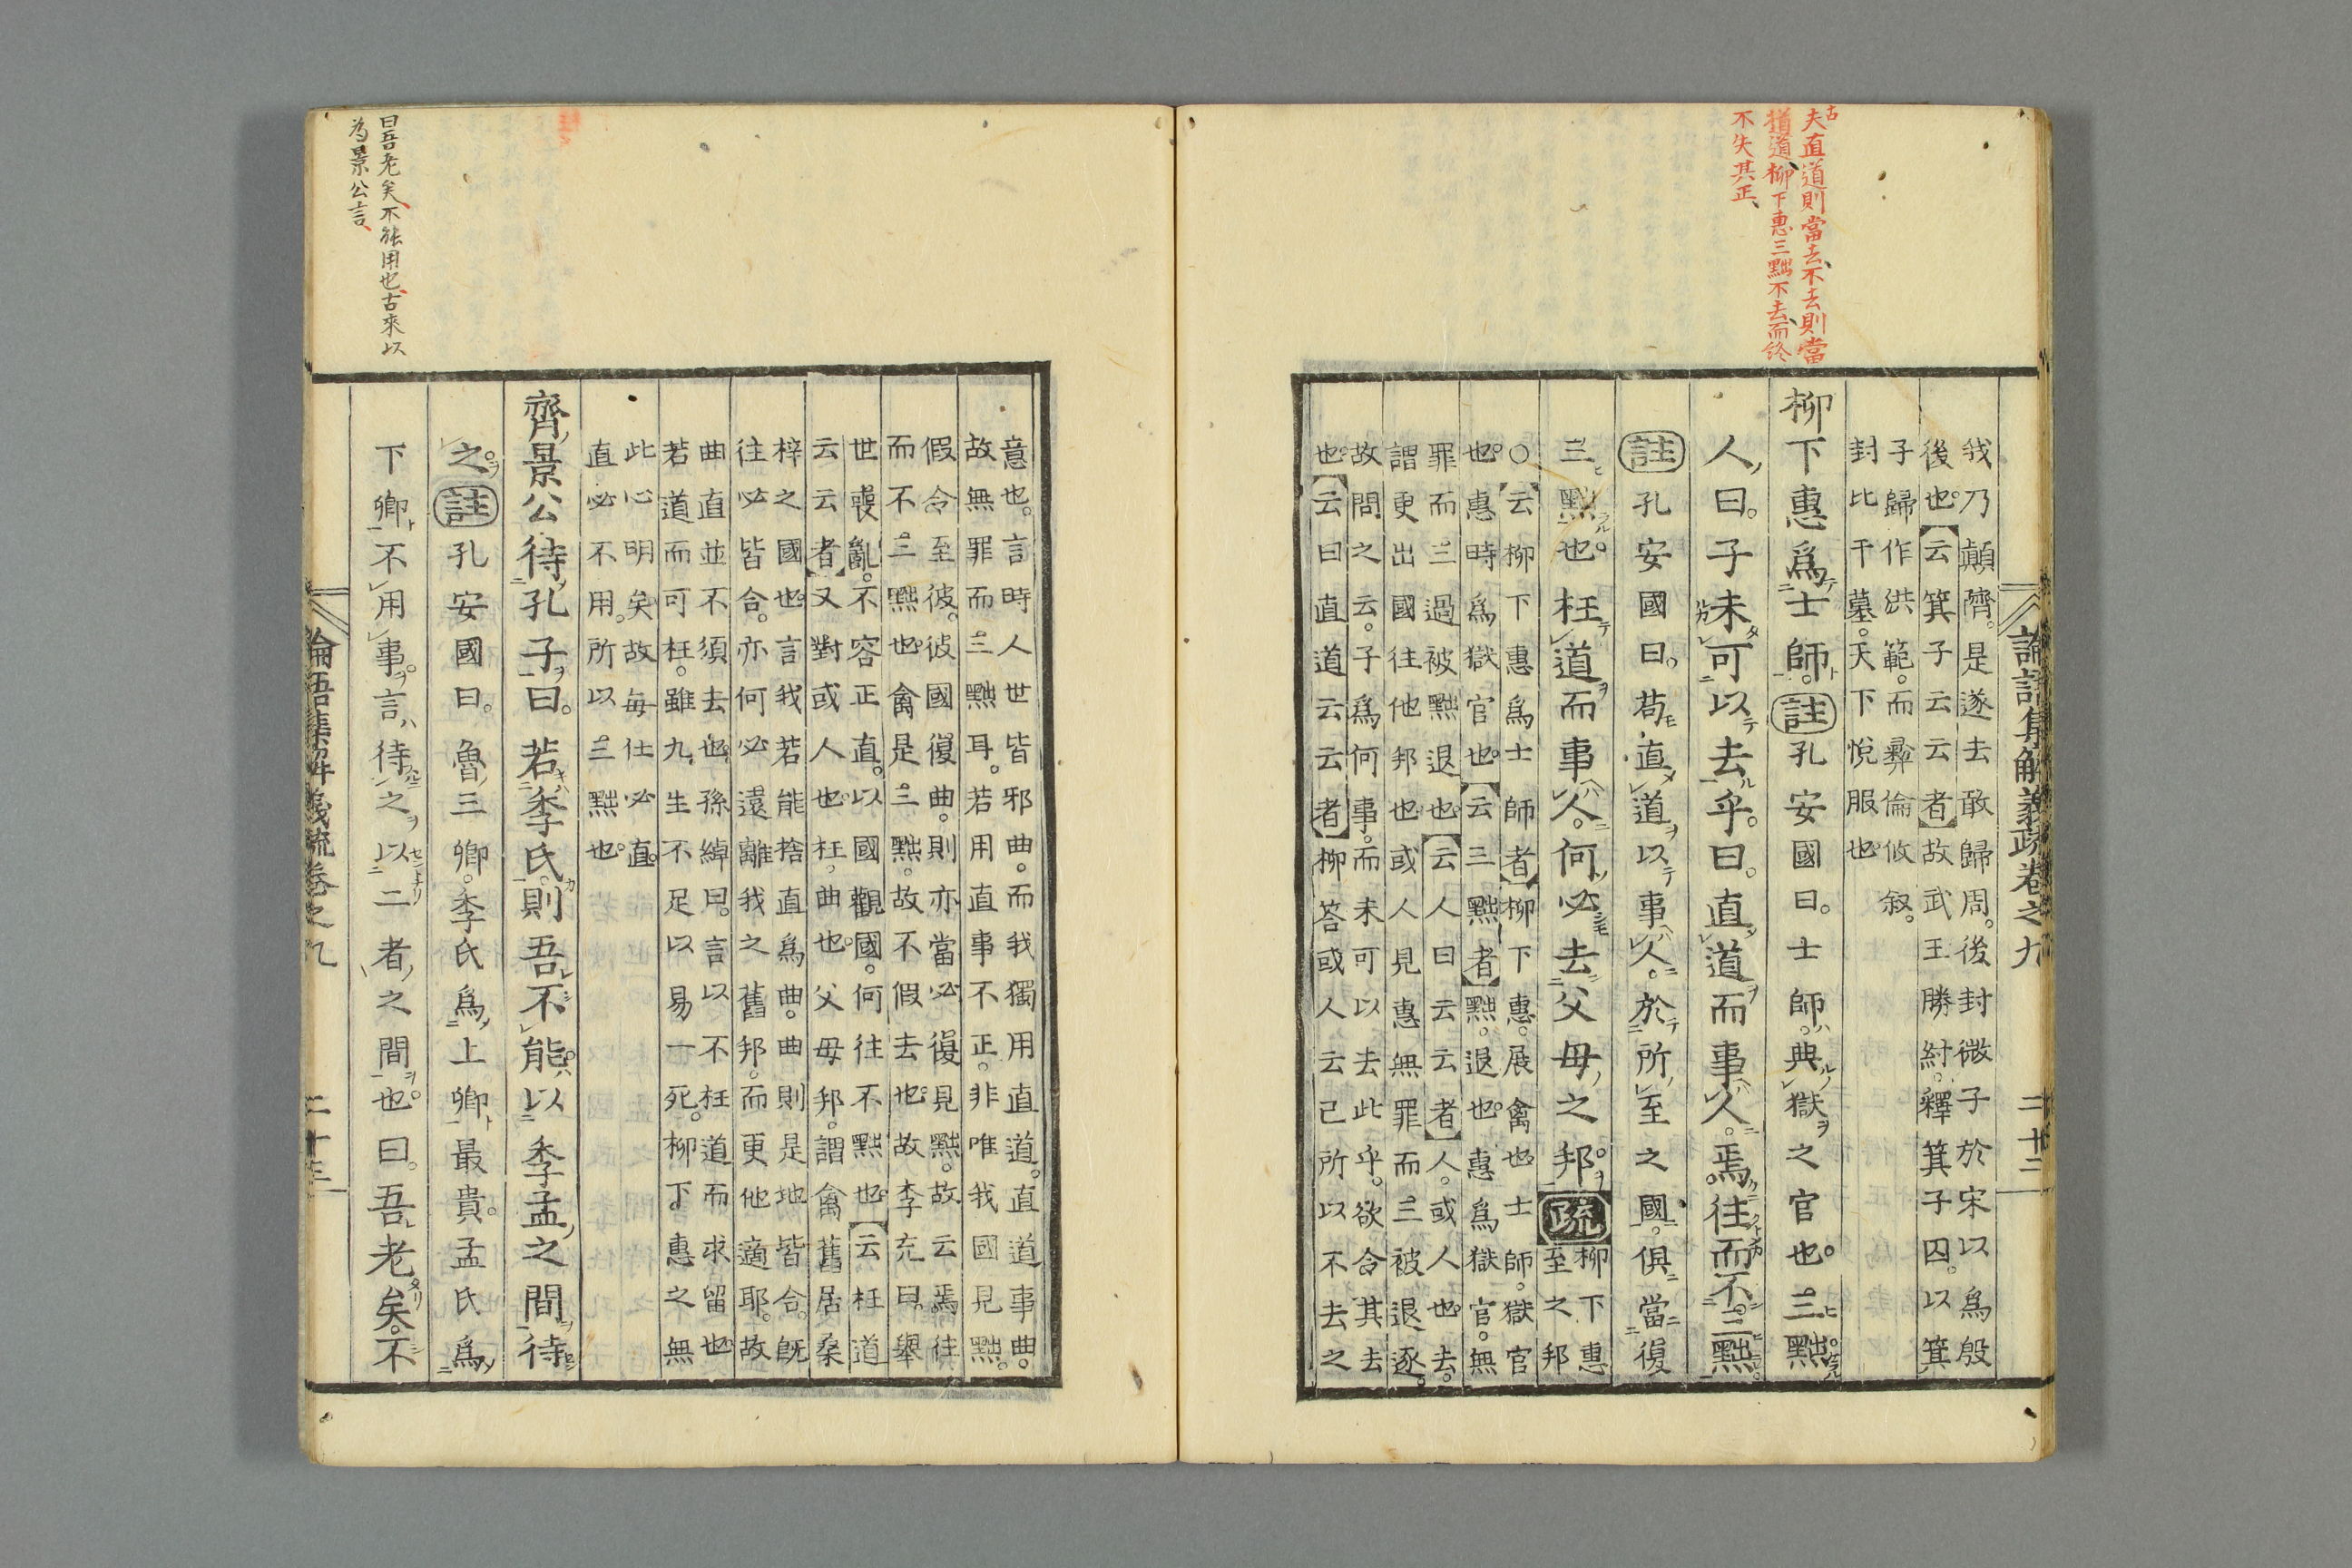 古
夫直道則當去、不去則當
道、柳下惠三黜不去、而終
不失其正、
論語集解義疏卷之九 二十二
我乃顛隮。是遂去敢歸周。後封微子於宋以爲殷
後也。【云箕子云云者】故武王勝紂。釋箕子囚。以箕
子歸作洪範。而彝倫攸叙。
封比干墓。天下悅服也。
柳下惠爲士師。註孔安國曰。士師。典獄之官也。三黜。
人曰。子未可以去乎。曰。直道而事人。焉往而不三黜。
註孔安國曰。苟直道以事人。於所至之國。俱當復
三黜也。枉道而事人。何必去父母之邦。疏
柳下惠
至之邦
○【云柳下惠爲士師者】柳下惠。展禽也。士師。獄官
也。惠時爲獄官也。【云三黜者】黜。退也。惠爲獄官。無
罪而三過被黜退也。【云人曰云云者】人。或人也。去。
謂更出國往他邦也。或人見惠無罪而三被退逐。
故問之云。子爲何事。而未可以去此乎。欲令其去
也。【云曰直道云云者】柳荅或人云。己所以不去之
意也。言時人世皆邪曲。而我獨用直道。直道事曲。
故無罪而三黜耳。若用直事不正。非唯我國見黜。
假令至彼。彼國復曲。則亦當必復見黜。故云焉往
而不三黜也。禽是三黜。故不假去也。故李充曰。舉
世喪亂。不容正直。以國觀國。何往不黜也。【云枉道
云云者】又對或人也。枉。曲也。父母邦。謂禽舊居桑
梓之國也。言我若能捨直爲曲。曲則是地皆合。既
往必皆合。亦何必遠離我之舊邦。而更他適耶。故
曲直並不須去也。孫綽曰。言以不枉道而求留也。
若道而可枉。雖九生不足以易一死。柳下惠之無
此心明矣。故每仕必直。
直必不用。所以三黜也。
齊景公待孔子曰。若季氏。則吾不能。以季孟之間待
之。註孔安國曰。魯三卿。季氏爲上卿。最貴。孟氏爲
下卿。不用事。言待之以二者之間也。曰。吾老矣。不
論語集解義疏卷之九 二十三
曰吾老矣、不能用也、古來以
為景公言、